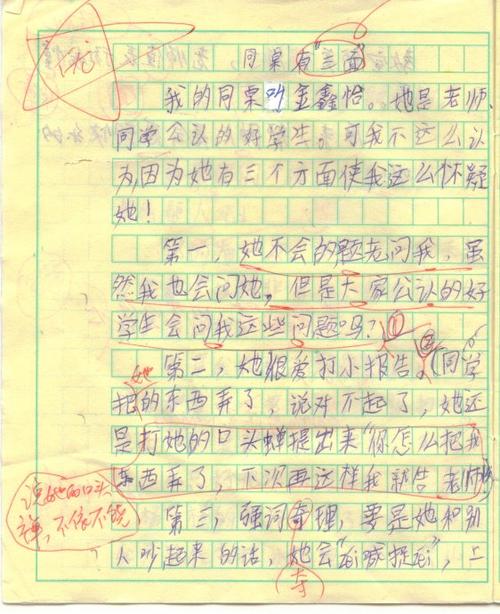 同桌有"三面"
我的同桌叫金鑫怡。她是老师、
同学公认的好学生。可我不这么认
为,因为她有三个方面使我这么怀疑
她!
第一,她不会的题老问我,虽
然我也会问她,但是大家公认的好
学生会问我这些问题吗?①
②
第二,她很爱打小报告。(同学
她
把的东西弄了,说对不起了,她还
是打她的口头蝉提出来"你怎么把我
东西弄了,下次再这样我就告老师
说她的口头
禅,不依不饶
第三,强词奇理,要是她和别
人吵起来的话,她会"贼喊捉贼",上
夺